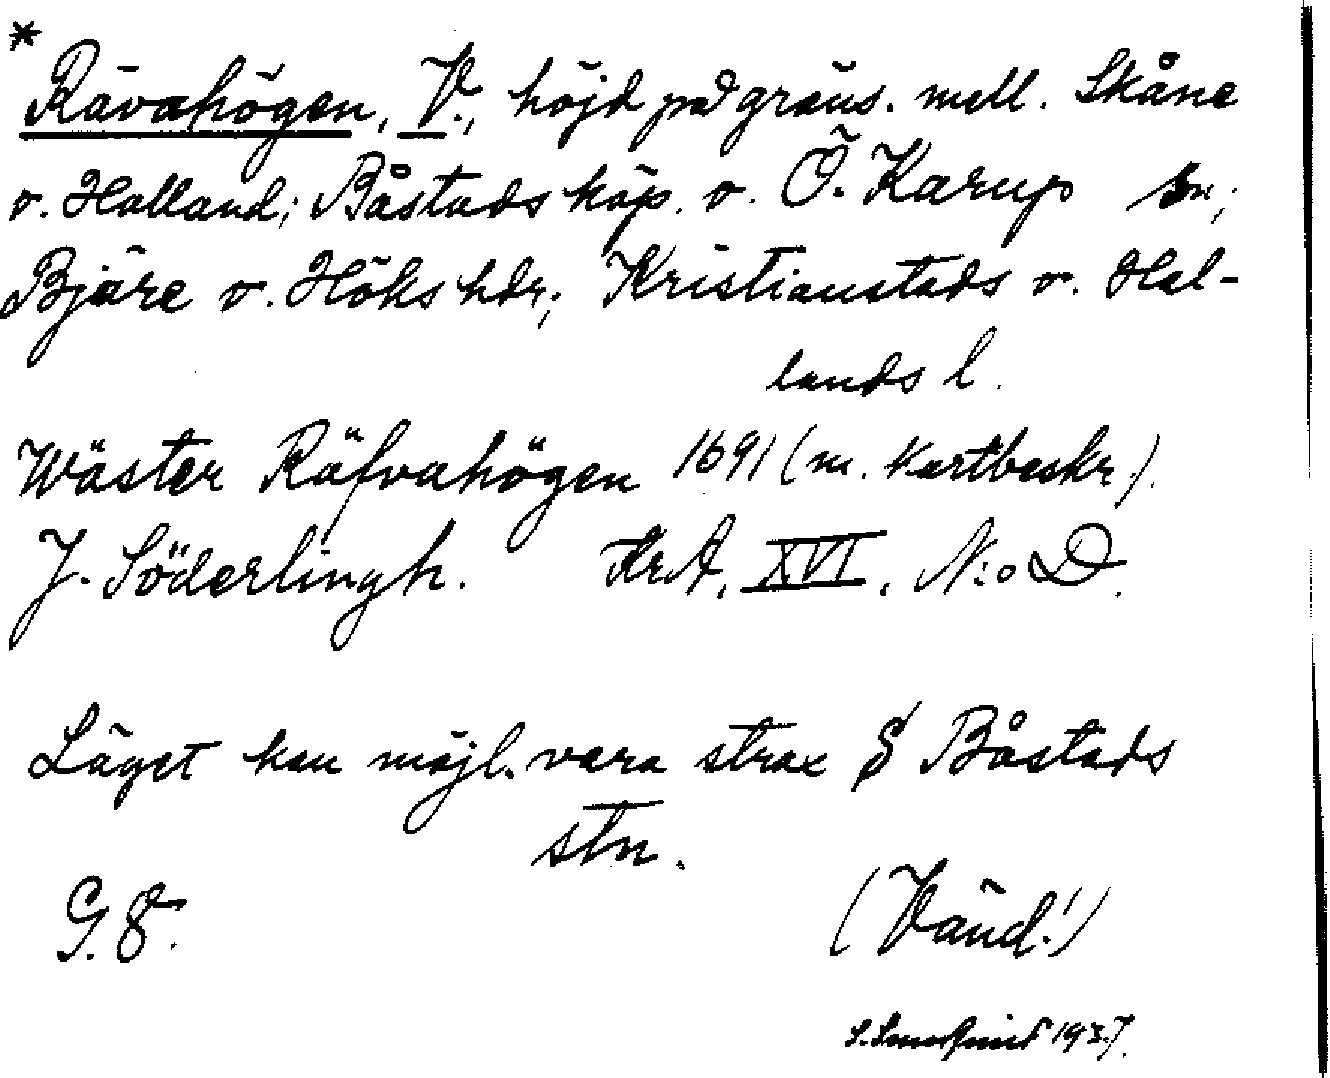 *
Rävahögen, V., höjd på gräns. mell. Skåne
o. Halland; Båstads köp. o. Ö. Karup sn;
Bjäre o. Höks hdr; Kristianstads o. Hal-
lands l.
Wäster Räfvahögen 1691 (m. kartbeskr.).
J. Söderlingh. KrA, XVI, N:o D.
Läget kan möjl. vara strax S Båstads
stn.
(Vänd!)
1937.